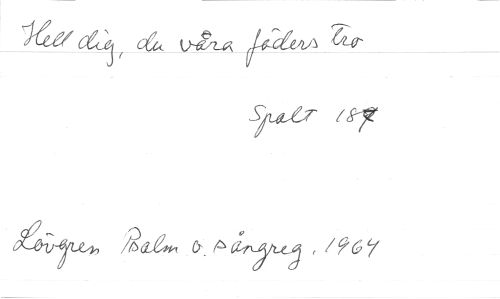 Hell dig, du våra fäders tro
Spalt 187
Lövgren Psalm o. sångreg. 1964